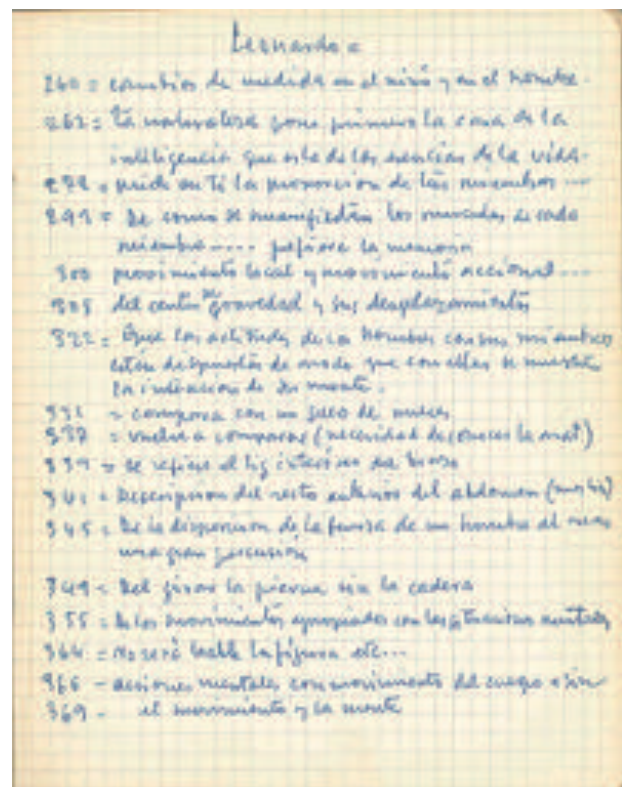 Leonardo =
260 = cambios de medida en el niño y en el hombre.
262 = La naturaleza pone primero la casa de la
inteligencia que es la de los de la vida.
mide en ti la proporcion de tus miembros ...
291 = De como se manifiestan los musculos de cada
miembro .... la memoria
300 movimiento local y movimiento accional ...
305 del centro de gravedad y sus desplazamientos
322 = Que las actitudes de los hombres con sus miembros
estén dispuestas de modo que con ellas se muestre
la intencion de su mente.
= compara con un saco de nueces
337 = vuelve a comparar (necesidad de conocer la anat)
339 = se refiere al
341 = Descripcion del recto del abdomen
345 = De la disposicion de la fuerza de un hombre al
una gran percusión
349 = Del girar la pierna sin la cadera
355 = De los movimientos apropiados con las mentales
364 = No será loable la figura etc...
366 - acciones mentales con movimiento del cuerpo o sin
369 - el movimiento y la mente